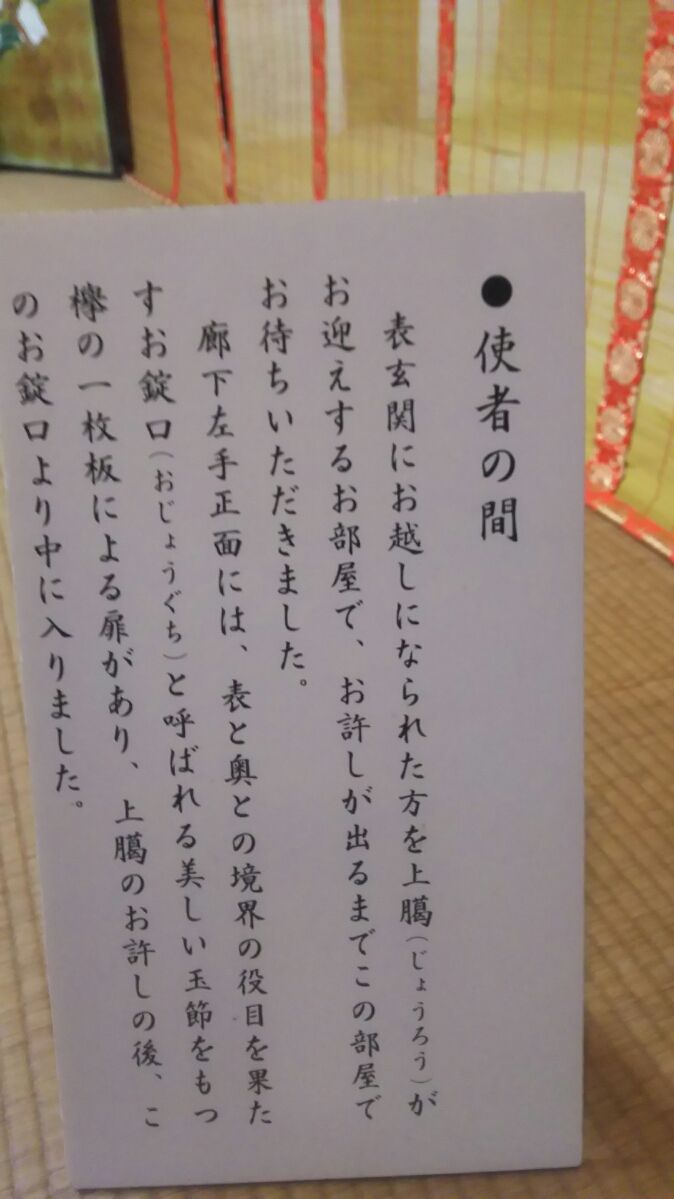 ●使者の間
表玄関にお越しになられた方を上臈(じょうろう)が
お迎えするお部屋で、お許しが出るまでこの部屋で
お待ちいただきました。
廊下左手正面には、表と奥との境界の役目を果た
すお錠口(おじょうぐち)と呼ばれる美しい玉節をもつ
欅の一枚板による扉があり、上臈のお許しの後、こ
のお錠口より中に入りました。